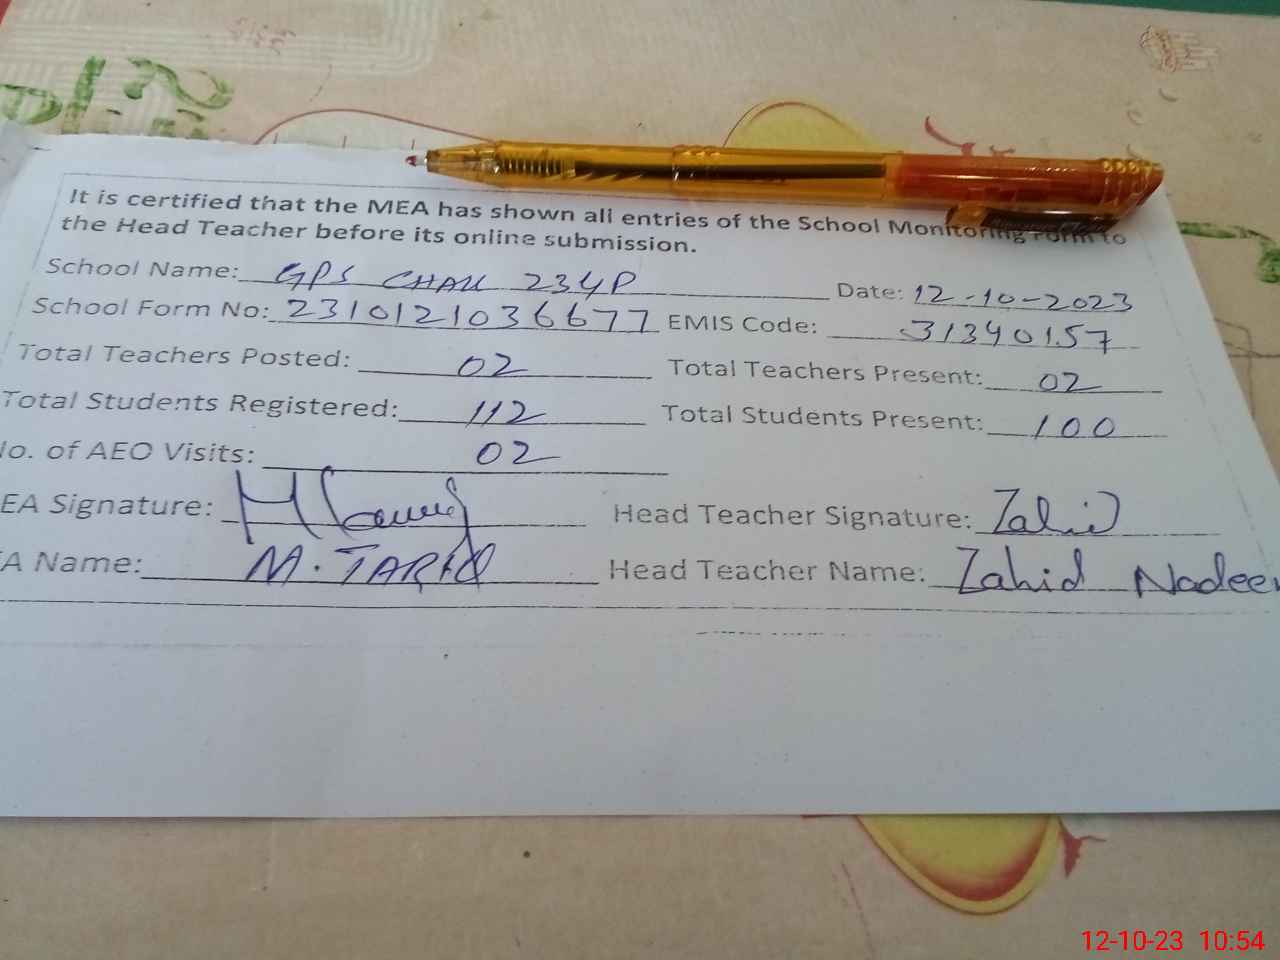 It is certified that the MEA has shown all entries of the School Monitoring Form to
the Head Teacher before its online submission.
School Name: GPS CHAK 234P Date: 12-10-2023
School Form No: 2310121036677 EMIS Code: 31340157
Total Teachers Posted: 02 Total Teachers Present: 02
Total Students Registered: 112 Total Students Present: 100
No. of AEO Visits: 02
EA Signature: Head Teacher Signature: Zahid
A Name: M. TARIQ Head Teacher Name: Zahid Nadee
12-10-23 10:54